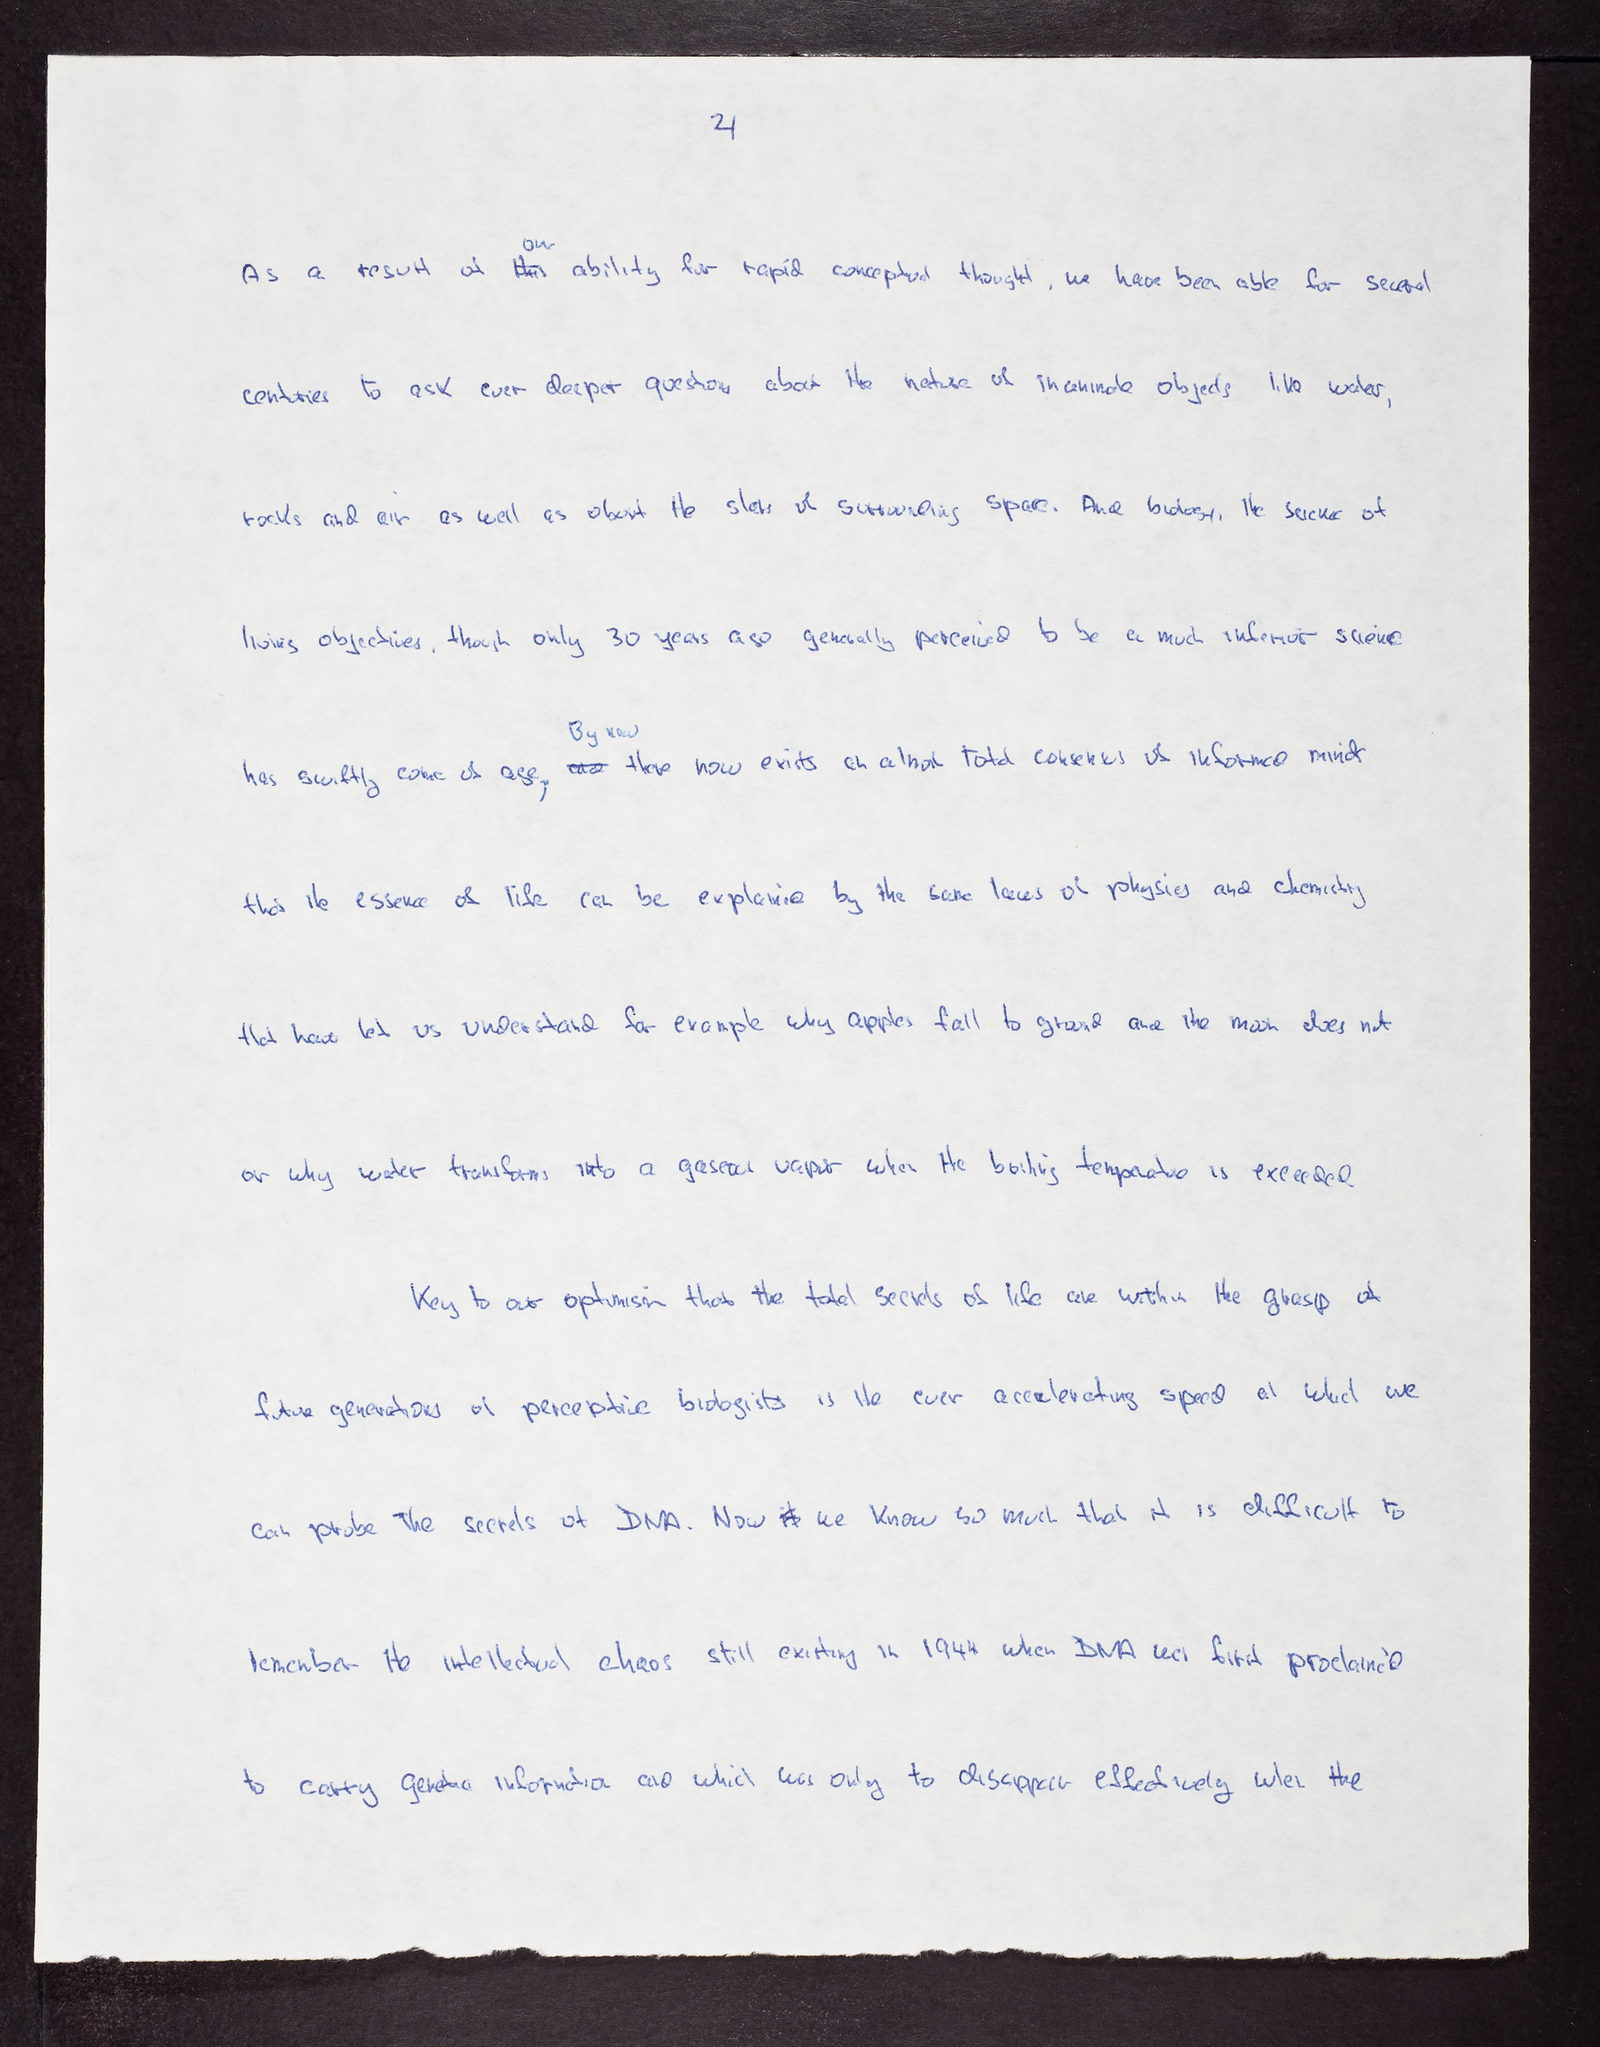 21
our
As a result of this ability for rapid conceptual thought, we have been able for several
centuries to ask ever deeper questions about the nature of inanimate objects like water,
rocks and air as well as about the stars of surrounding space. And biology, the science of
living objectives, though only 30 years ago generally perceived to be a much inferior science
By now
has swiftly come of age; there now exists an almost total consensus of informed minds
that the essence of life can be explained by the same laws of physics and chemistry
that have let us understand for example why apples fall to ground and the moon does not
or why water transforms into a gaseous vapor when the boiling temperature is exceeded
Key to our optimism that the total secrets of life are within the grasp of
future generations of perceptive biologists is the ever accelerating speed at which we
can probe the secrets of DNA. Now it we know so much that it is difficult to
remember the intellectual chaos still existing in 1944 when DNA was first proclaimed
to carry genetic information and which was only to disappear effectively when the